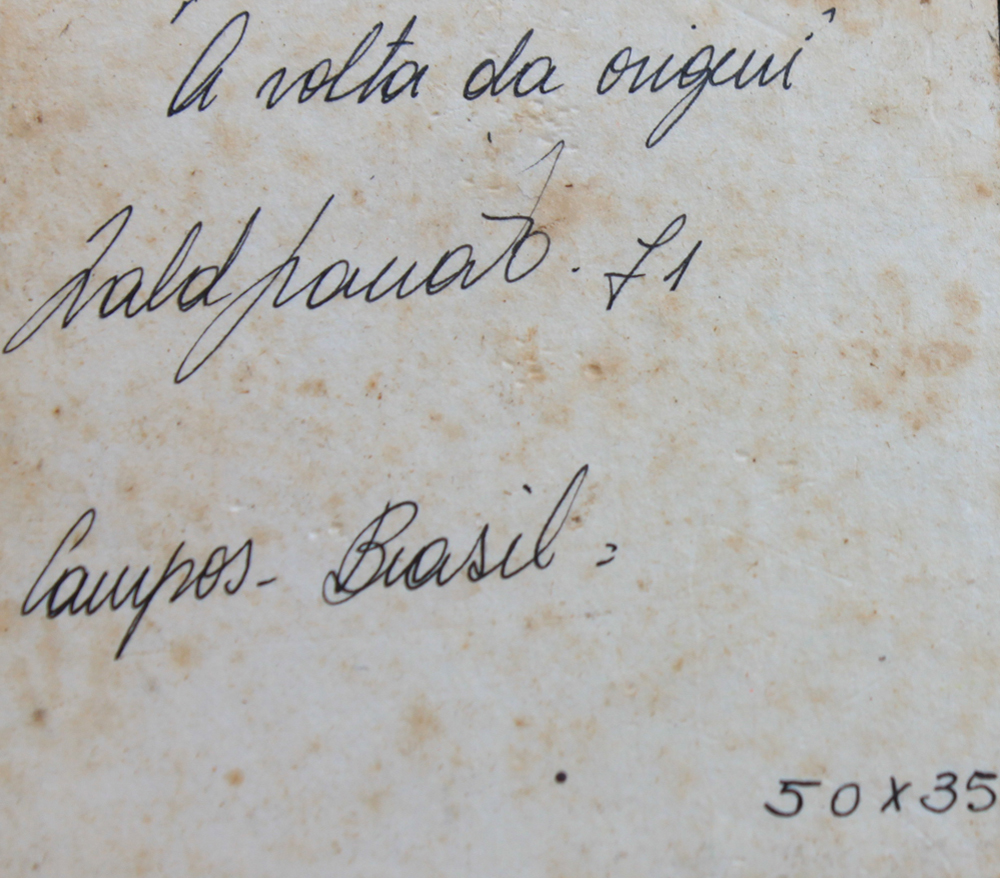 "A volta da origem"
71
Campos - Brasil =
50 x 35